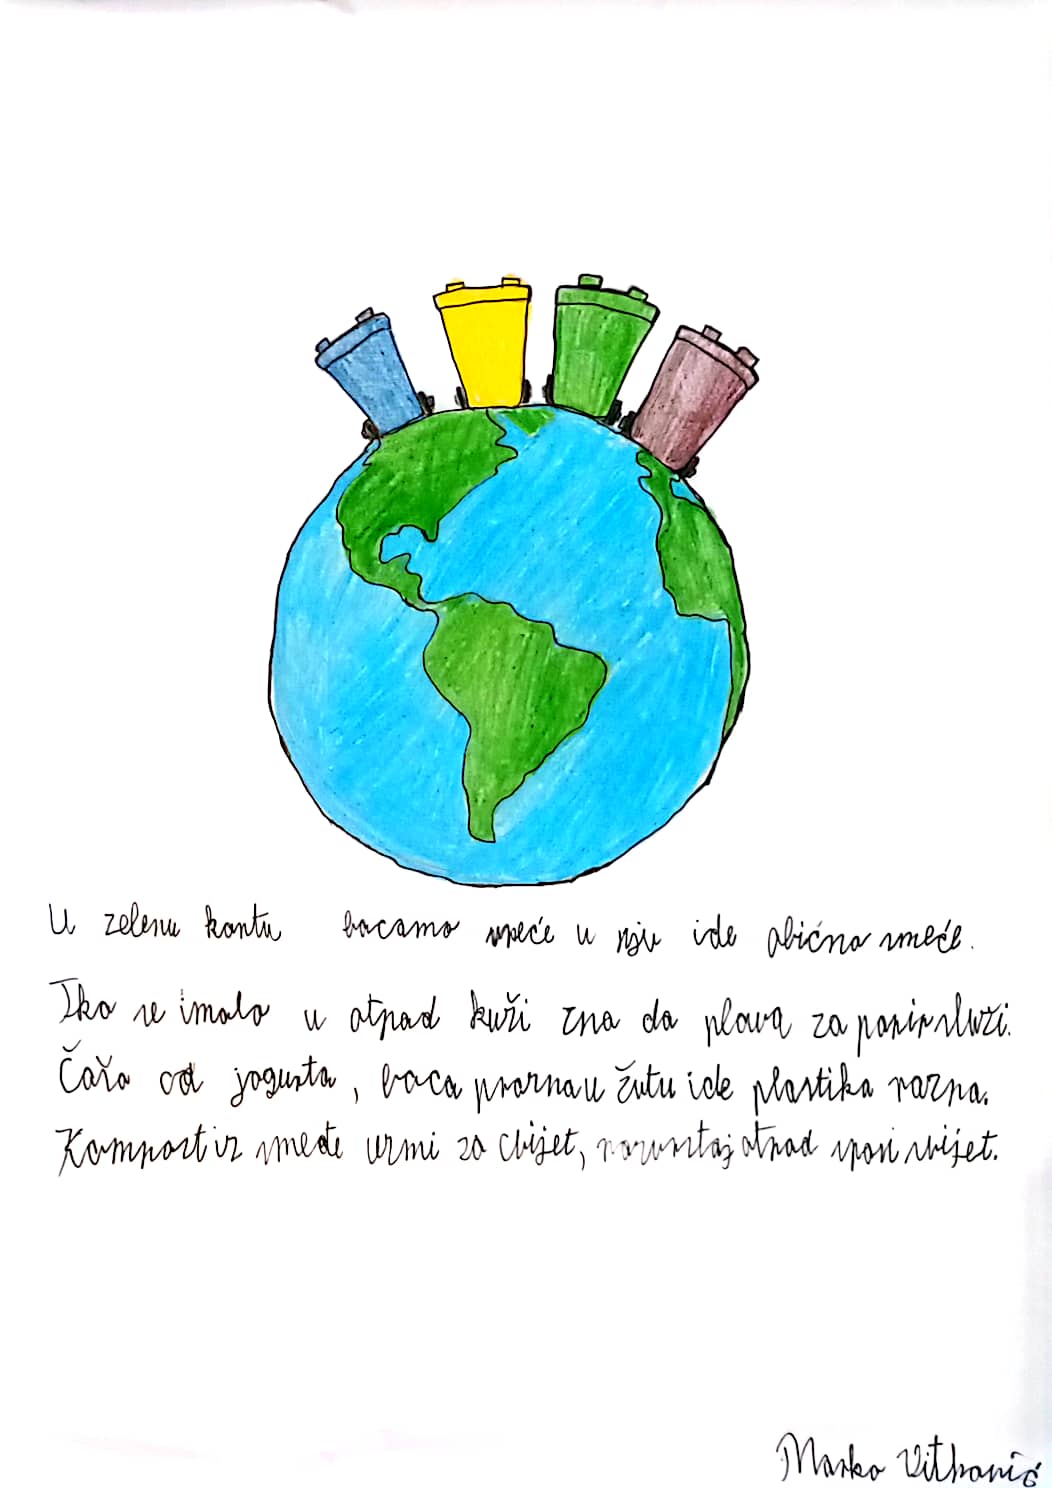 U zelenu kantu bacamo vreće u nju ide obično smeće.
Tko se imalo u otpad kuži zna da plava za papir služi.
Čaša od jogurta, baca prazna u žutu ide plastika razna.
Kompost iz smeđe uzmi za cvijet, razvrstaj otpad spasi svijet.
Marko